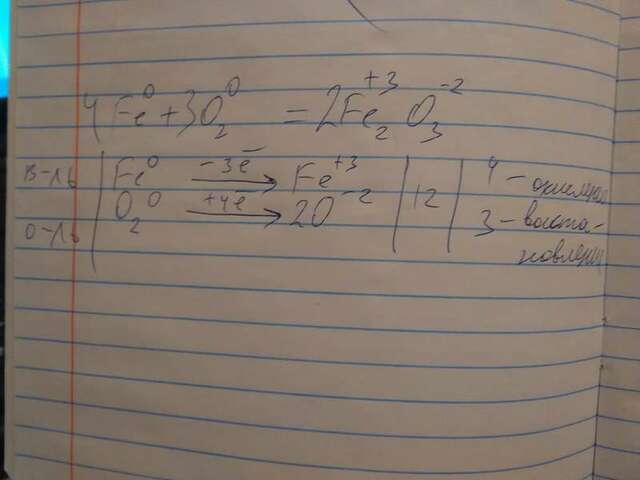 4Fe⁰ + 3O₂⁰ = 2Fe₂⁺³O₃⁻²
в-ль | Fe⁰ –3e̅→ Fe⁺³ | 12 | 4 – окисление
о-ль | O₂⁰ +4e̅→ 2O⁻² | 3 – восста-
новление